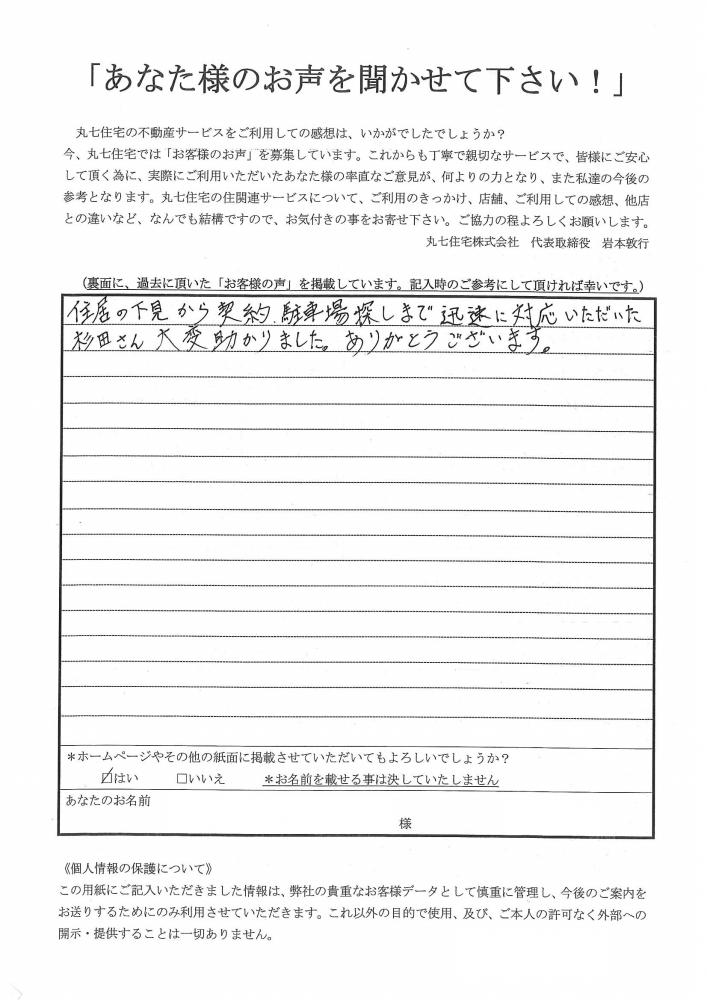 「あなた様のお声を聞かせて下さい！」
丸七住宅の不動産サービスをご利用しての感想は、いかがでしたでしょうか？
今、丸七住宅では「お客様のお声」を募集しています。これからも丁寧で親切なサービスで、皆様にご安心
して頂く為に、実際にご利用いただいたあなた様の率直なご意見が、何よりの力となり、また私達の今後の
参考となります。丸七住宅の住関連サービスについて、ご利用のきっかけ、店舗、ご利用しての感想、他店
との違いなど、なんでも結構ですので、お気付きの事をお寄せ下さい。ご協力の程よろしくお願いします。
丸七住宅株式会社　代表取締役　岩本敦行
（裏面に、過去に頂いた「お客様の声」を掲載しています。記入時のご参考にして頂ければ幸いです。）
住居の下見から契約、駐車場探しまで迅速に対応いただいた
杉田さん大変助かりました。ありがとうございます。
＊ホームページやその他の紙面に掲載させていただいてもよろしいでしょうか？
☑はい　□いいえ　＊お名前を載せる事は決していたしません
あなたのお名前
様
《個人情報の保護について》
この用紙にご記入いただきました情報は、弊社の貴重なお客様データとして慎重に管理し、今後のご案内を
お送りするためにのみ利用させていただきます。これ以外の目的で使用、及び、ご本人の許可なく外部への
開示・提供することは一切ありません。